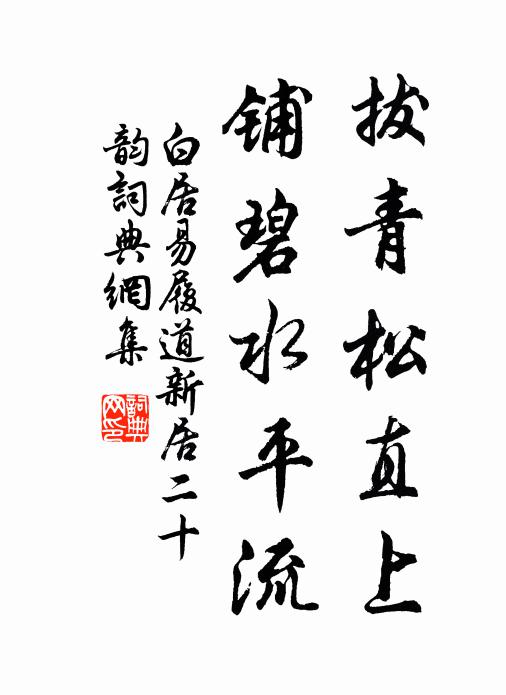 拔青松直上
铺碧水平流
白居易履道新居二十
韵詞典網集
詞典网印